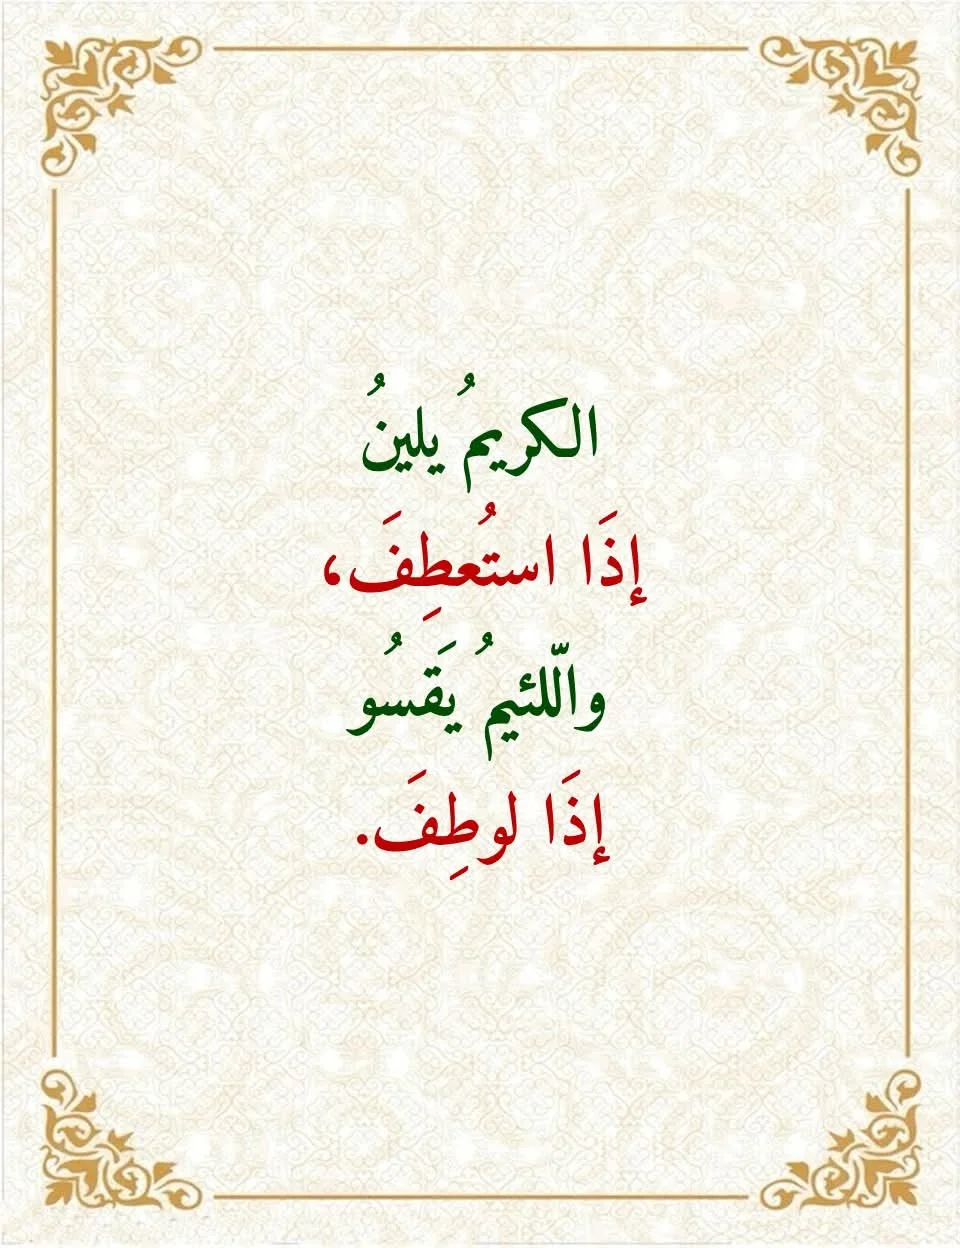 الكريمُ يلينُ
إذَا استُعطِفَ،
والّلئيمُ يَقسُو
إذَا لوطِفَ.